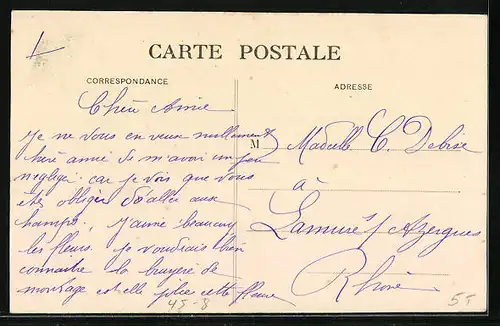 CARTE POSTALE
CORRESPONDANCE
ADRESSE
Chère Amie
Je ne vous en veux nullement
chère amie de m'avoir un peu
négligée car je vois que vous
êtes obligée d'aller aux
champs, j'aime beaucoup
les fleurs. je voudrais bien
connaitre la bruyère de
montage est elle jolie cette fleur
M
Madelle C. Debise
à
Lamure s/ Azergues
Rhône
45-8
55